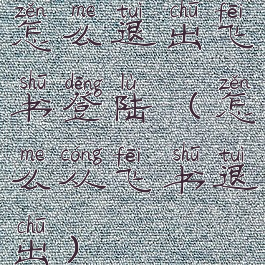 zěn me tuì chū fēi
怎么退出飞
shū dēng lù zěn
书登陆（怎
me cóng fēi shū tuì
么从飞书退
chū
出）